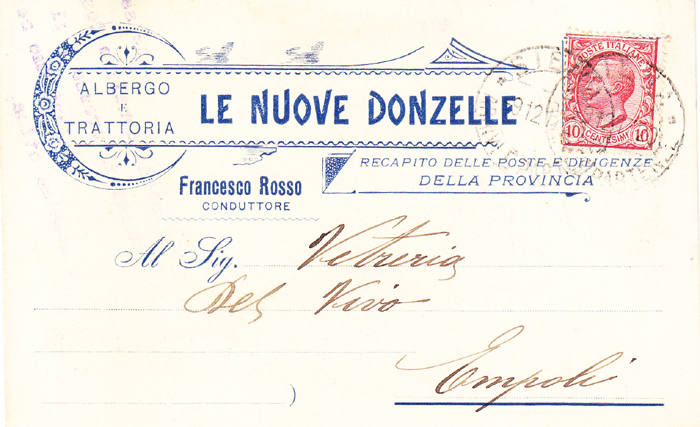 ALBERGO
E
TRATTORIA
LE NUOVE DONZELLE
POSTE ITALIANE
10 CENTESIMI 10
RECAPITO DELLE POSTE E DILIGENZE
DELLA PROVINCIA
Francesco Rosso
CONDUTTORE
Al Sig. Vetreria
Del Vivo
Empoli
)